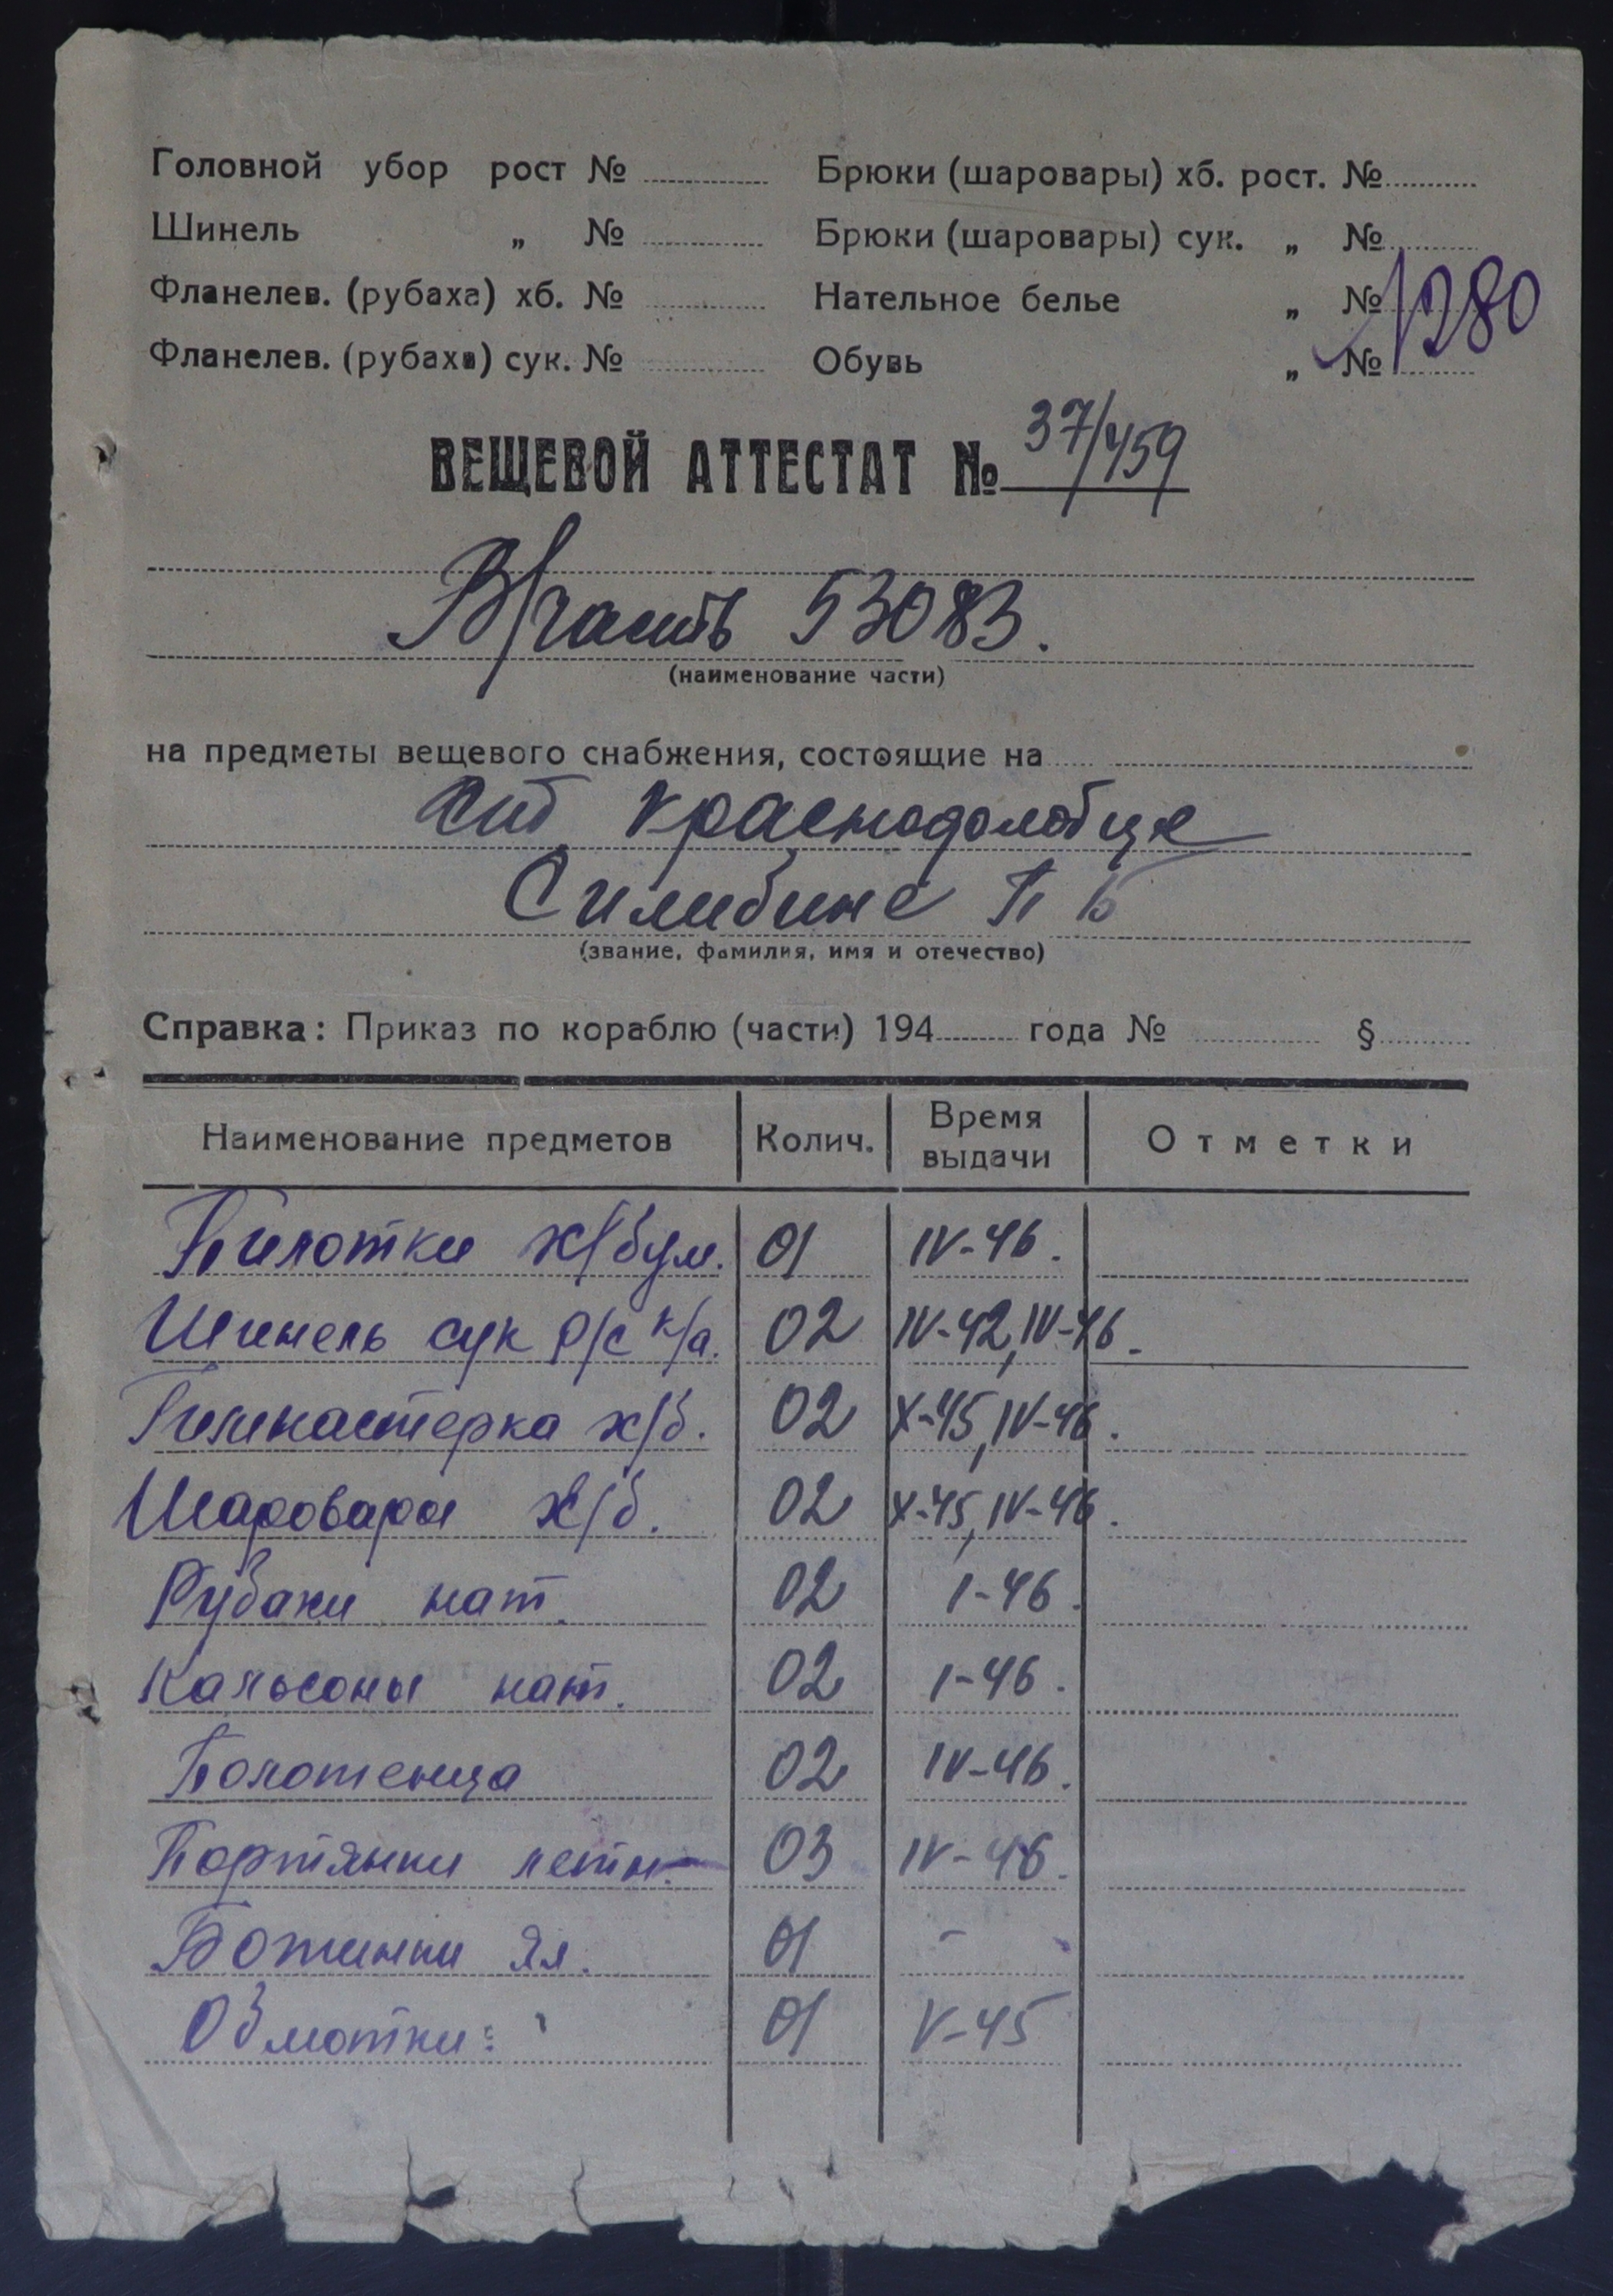 Головной убор рост №
Брюки (шаровары) хб. рост. №
Шинель „ №
Брюки (шаровары) сук. „ №
Фланелев. (рубаха) хб. №
Нательное белье „ №
1280
Фланелев. (рубаха) сук. №
Обувь „ №
ВЕЩЕВОЙ АТТЕСТАТ № 37/459
В/часть 53083.
(наименование части)
на предметы вещевого снабжения, состоящие на
П Б
(звание, фамилия, имя и отчество)
Справка: Приказ по кораблю (части) 194 года № §
Наименование предметов Колич. Время выдачи Отметки
Пилотки х/бум. 01 IV-46.
Шинель сук р/с к/а. 02 IV-42, IV-46.
Гимнастерка х/б. 02 X-45, IV-46.
Шаровары х/б. 02 X-45, IV-46.
Рубахи нат. 02 I-46.
Кальсоны нат. 02 I-46.
Полотенца 02 IV-46.
Портянки летн. 03 IV-46.
Ботинки ял. 01 -
Обмотки: 01 V-45